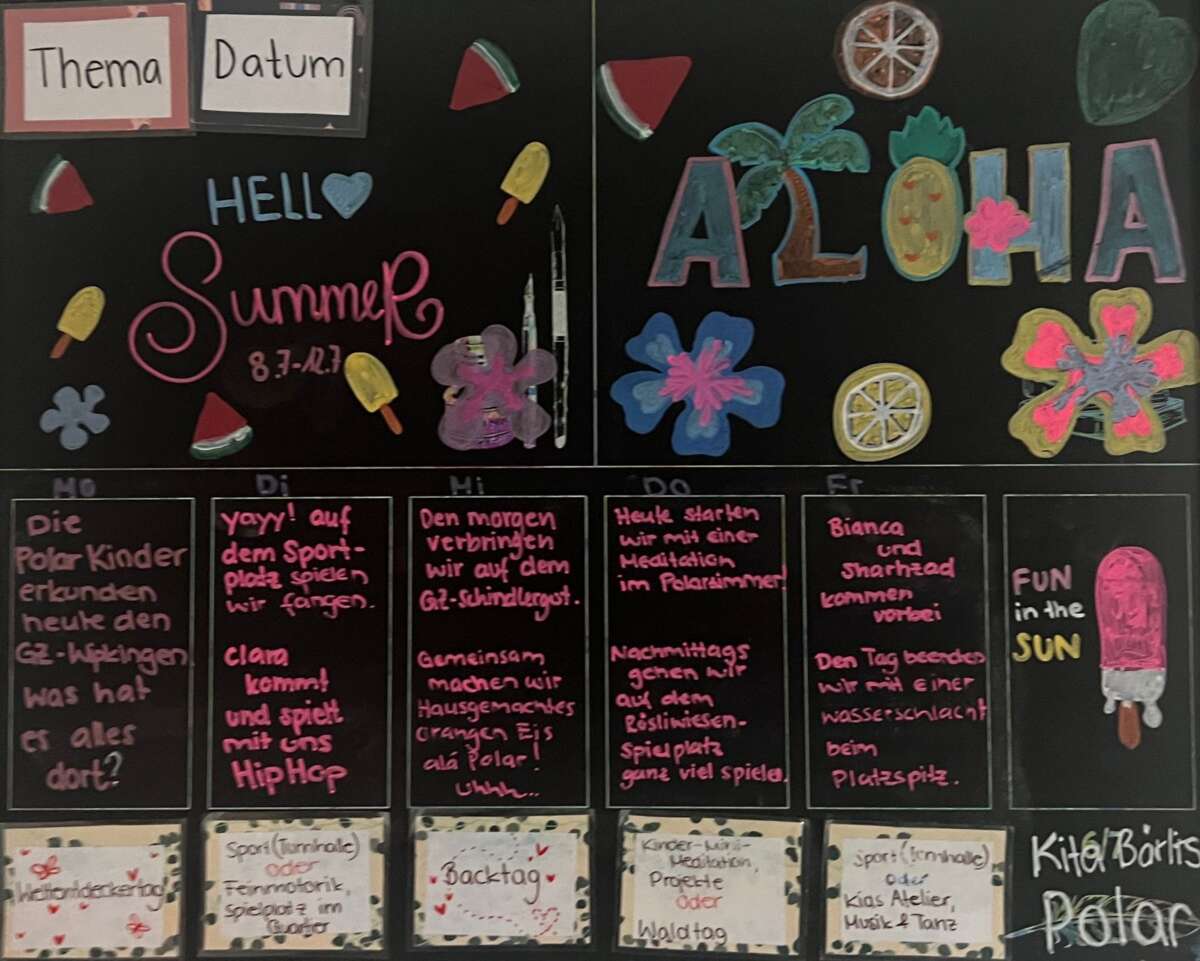 Thema
Datum
HELLO
SUMMER
8.7-12.7
ALOHA
Mo
Di
Mi
Do
Fr
Die
Polar Kinder
erkunden
heute den
GZ-Wipkingen
was hat
es alles
dort?
yayy! auf
dem Sport-
platz spielen
wir fangen.
Clara
kommt
und spielt
mit uns
HipHop
Den morgen
verbringen
wir auf dem
GZ-Schindlergut.
Gemeinsam
machen wir
Hausgemachtes
orangen Eis
alá Polar!
uhhh..
Heute starten
wir mit einer
Meditation
im Polarzimmer!
Nachmittags
gehen wir
auf dem
Rösliwiesen-
Spielplatz
ganz viel spiele.
Bianca
und
Sharhzad
kommen
vorbei
Den Tag beenden
wir mit einer
wasserschlacht
beim
Platzspitz.
FUN
in the
SUN
Weltentdeckertag
Sport (Turnhalle)
oder
Feinmotorik,
Spielplatz im
Quartier
Backtag
Kinder-Mini-
Meditation,
Projekte
oder
Waldtag
Sport (Turnhalle)
oder
Kias Atelier,
Musik & Tanz
Polar